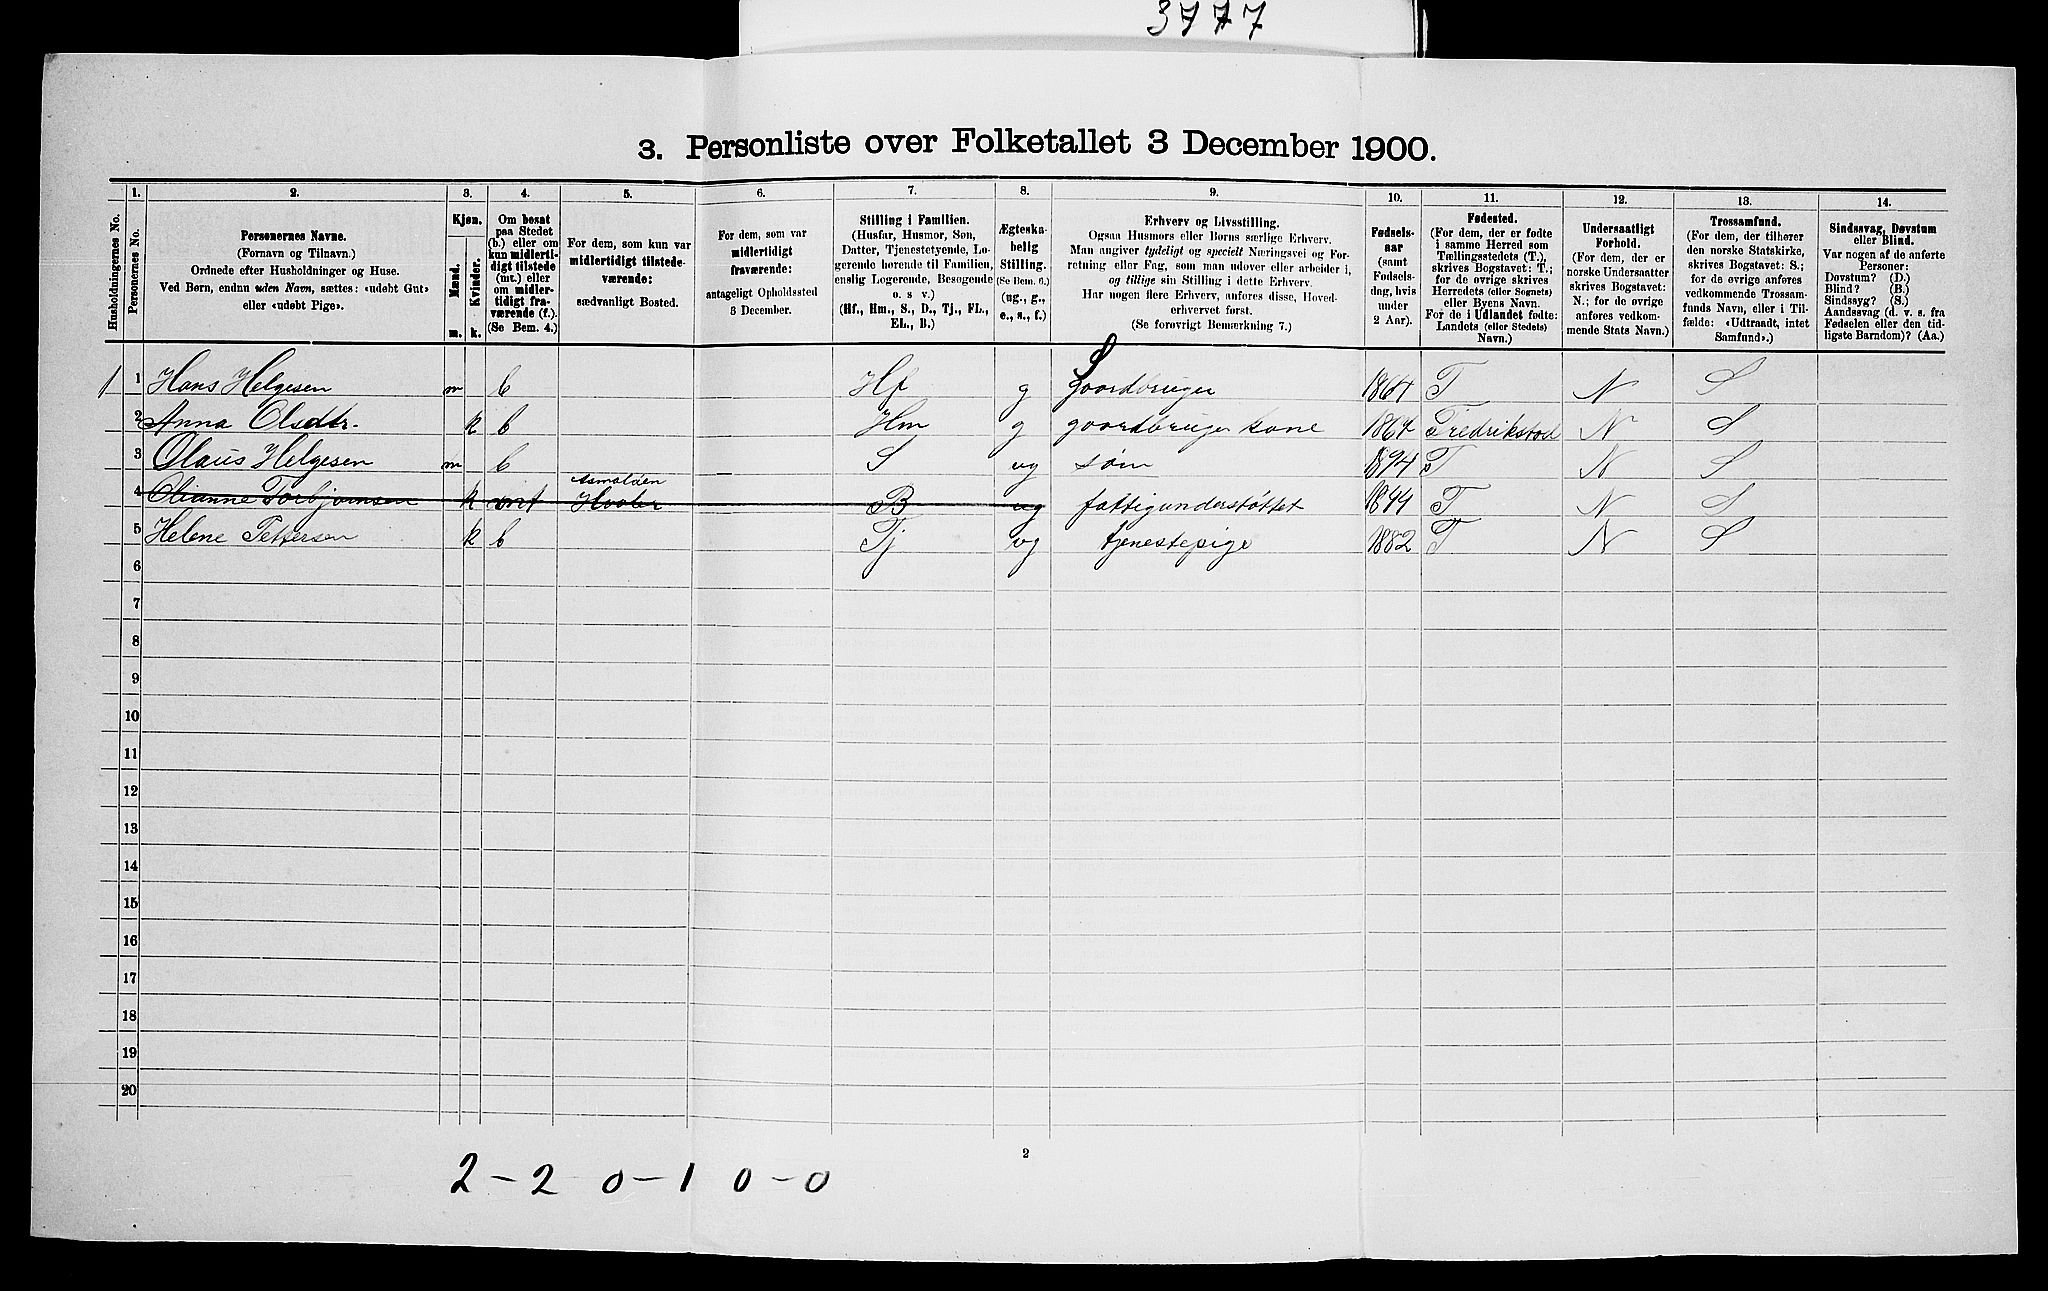 3777
3. Personliste over Folketallet 3 December 1900.
Husholdningernes No.
1.
Personernes No.
2.
Personernes Navne.
(Fornavn og Tilnavn.)
Ordnede efter Husholdninger og Huse.
Ved Børn, endnu uden Navn, sættes: «udøbt Gut»
eller «udøbt Pige».
3.
Kjøn.
Mænd.
Kvinder.
m. k.
4.
Om bosat
paa Stedet
(b.) eller om
kun midlerti-
digt tilstede
(mt.) eller
om midler-
tidigt fra-
værende (f.).
(Se Bem. 4.)
5.
For dem, som kun var
midlertidigt tilstede-
værende:
sædvanligt Bosted.
6.
For dem, som var
midlertidigt
fraværende:
antageligt Opholdssted
3 December.
7.
Stilling i Familien.
(Husfar, Husmor, Søn,
Datter, Tjenestetyende, Lo-
gerende hørende til Familien,
enslig Logerende, Besøgende
o. s v.)
(Hf., Hm., S., D., Tj., FL.,
EL., B.)
8.
Ægteska-
belig
Stilling.
(Se Bem. 6.)
(ug., g.,
e., s., f.)
9.
Erhverv og Livsstilling.
Ogsaa Husmors eller Børns særlige Erhverv.
Man angiver tydeligt og specielt Næringsvei og For-
retning eller Fag, som man udøver eller arbeider i,
og tillige sin Stilling i dette Erhverv.
Har nogen flere Erhverv, anføres disse, Hoved-
erhvervet først.
(Se forøvrigt Bemærkning 7.)
10.
Fødsels-
aar
(samt
Fødsels-
dag, hvis
under
2 Aar).
11.
Fødested.
(For dem, der er fødte
i samme Herred som
Tællingsstedets (T.),
skrives Bogstavet: T.;
for de øvrige skrives
Herredets (eller Sognets)
eller Byens Navn.
For de i Udlandet fødte:
Landets (eller Stedets)
Navn.)
12.
Undersaatligt
Forhold.
(For dem, der er
norske Undersaatter
skrives Bogstavet:
N.; for de øvrige
anføres vedkom-
mende Stats Navn.)
13.
Trossamfund.
(For dem, der tilhører
den norske Statskirke,
skrives Bogstavet: S.;
for de øvrige anføres
vedkommende Trossam-
funds Navn, eller i Til-
fælde: «Udtraadt, intet
Samfund».)
14.
Sindssvag, Døvstum
eller Blind.
Var nogen af de anførte
Personer:
Døvstum? (D.)
Blind? (B.)
Sindssyg? (S.)
Aandssvag (d. v. s. fra
Fødselen eller den tid-
ligste Barndom)? (Aa.)
1 1 Hans Helgesen m b Hf g Gaardbruger 1864 T N S
2 Anna Olsdtr. k b Hm g gaardbruger kone 1864 Fredrikstad N S
3 Olaus Helgesen m b S ug søm 1894 T N S
4 Olianne Torbjørnsen k mt Asmaløen Hvaler B ug fattigunderstøttet 1844 T N S
5 Helene Pettersen k b Tj ug tjenestepige 1882 T N S
6
7
8
9
10
11
12
13
14
15
16
17
18
19
20
2
2 - 2 0 - 1 0 - 0